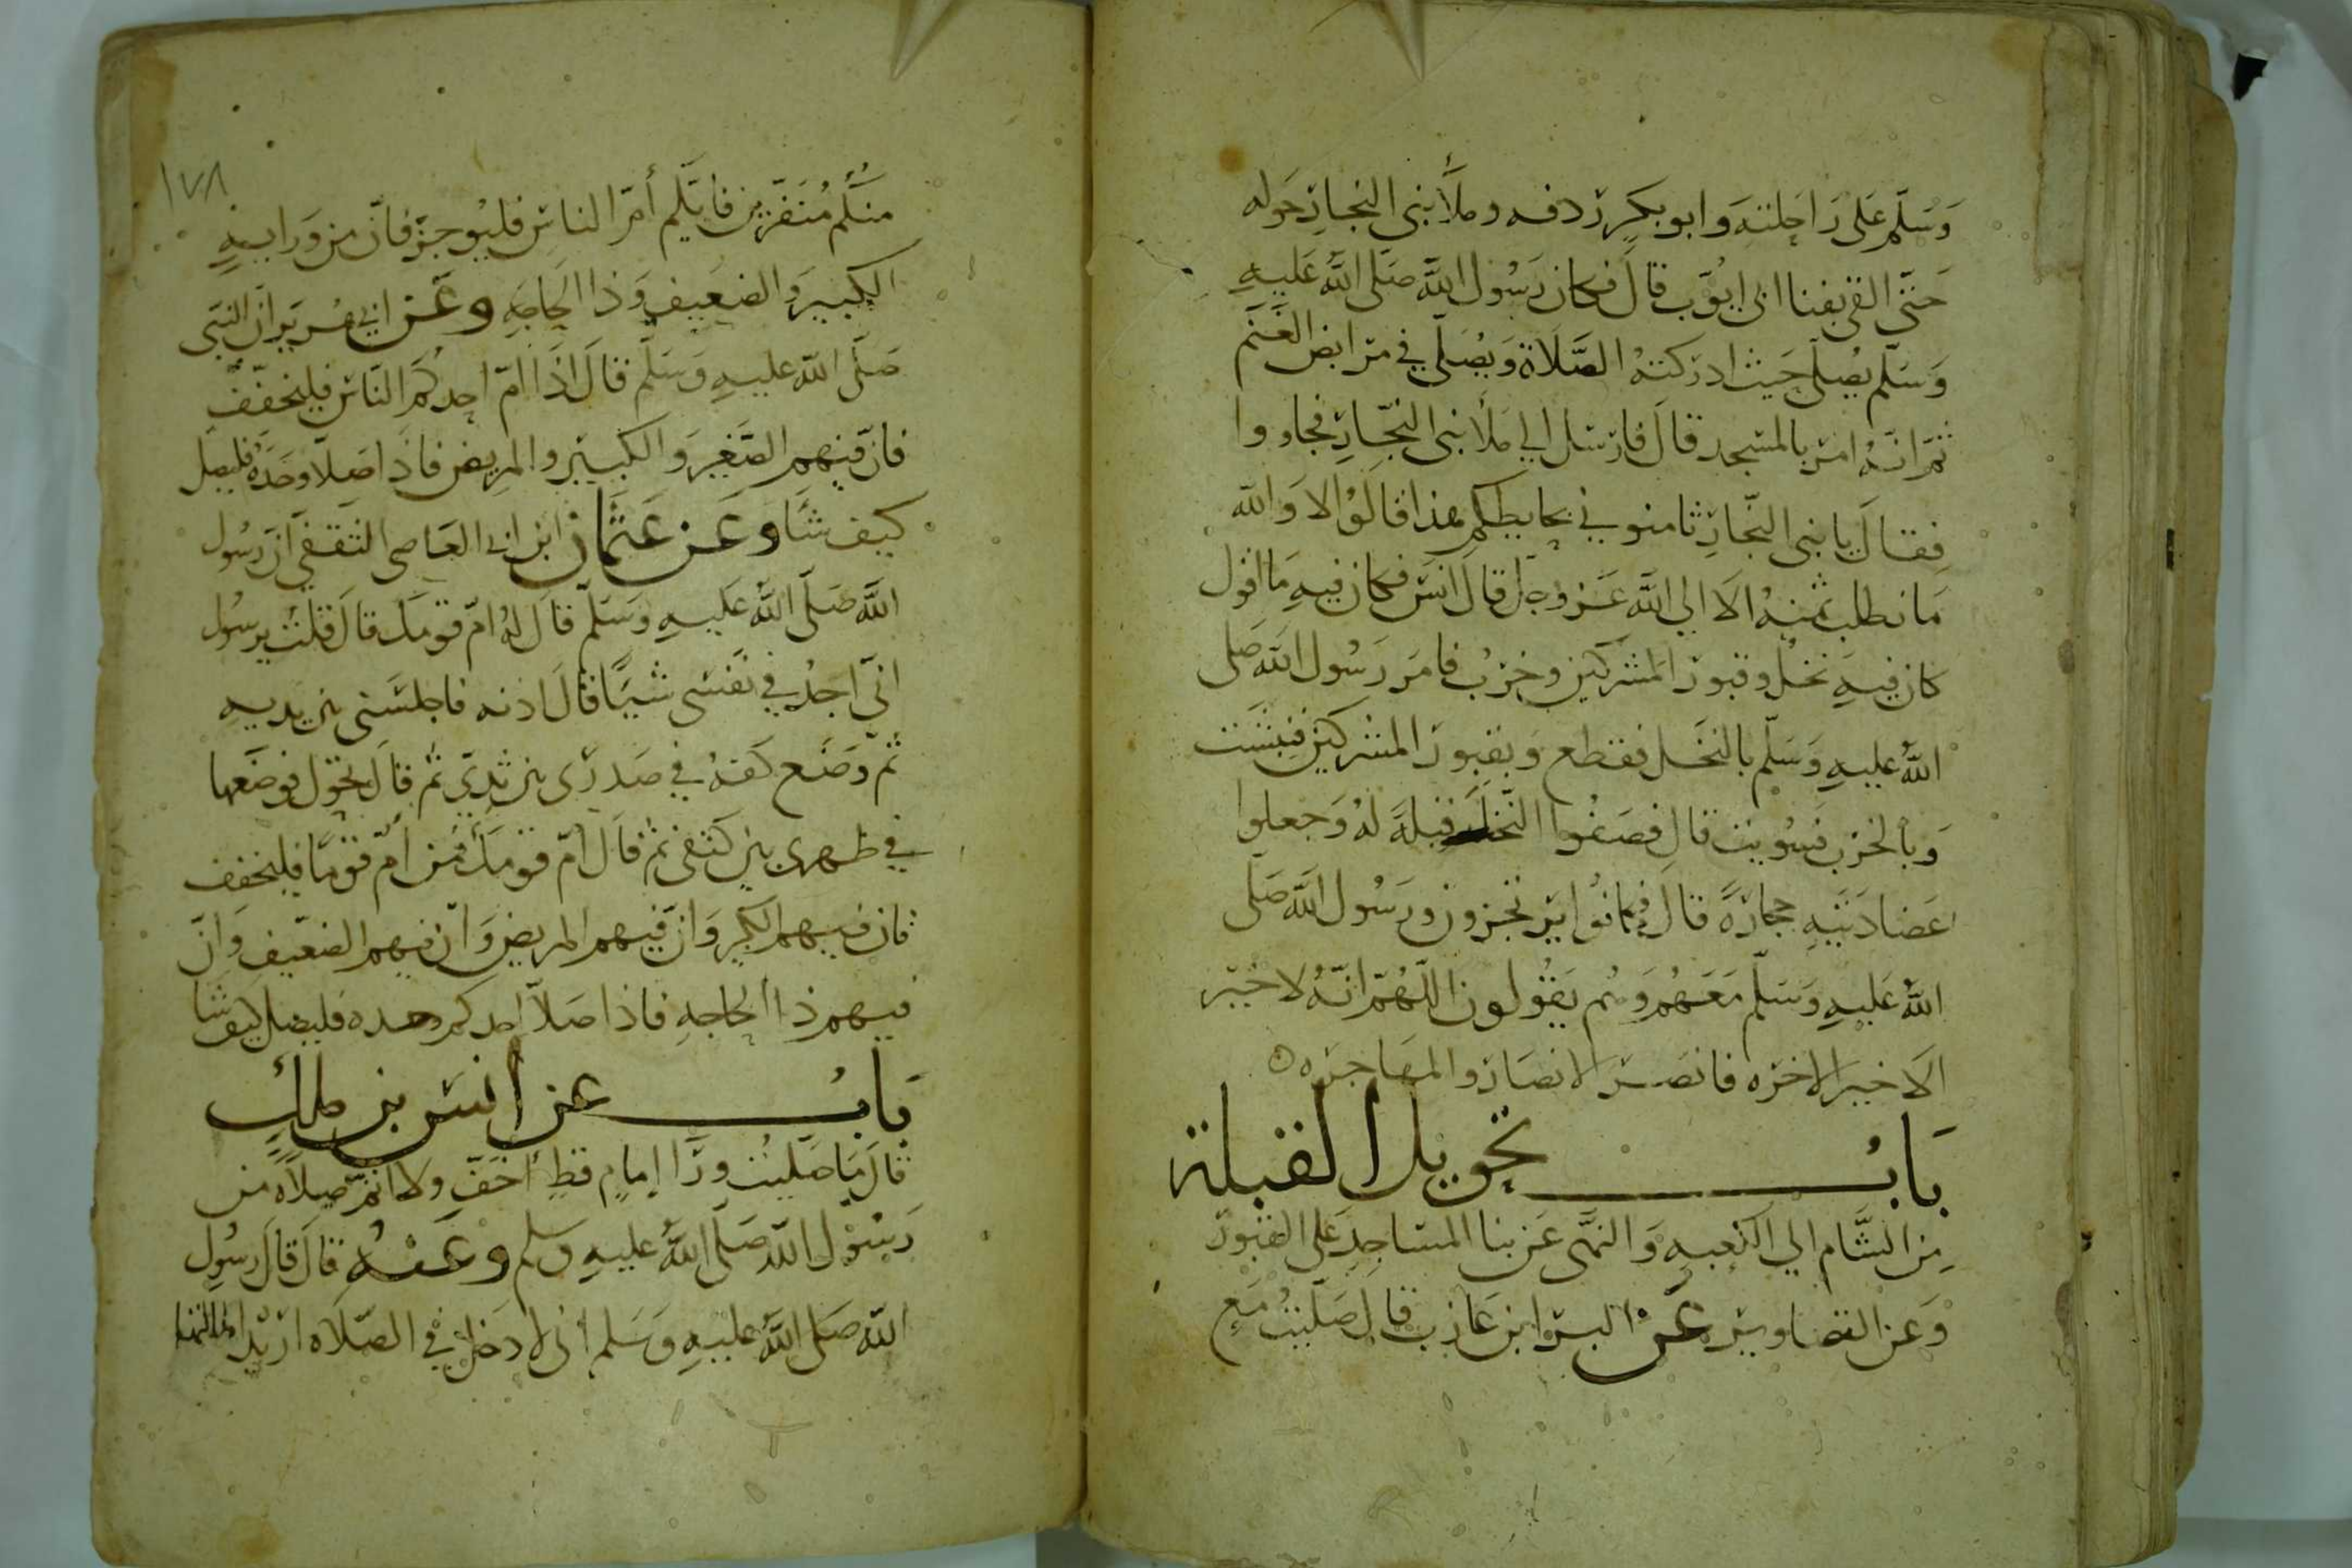 وَسَلّم عَلى رَاحِلتهَ وَابو بكرٍ ردفه وملأُ بنى النجار حَوله
حَتّى القى بفنا ابى ايوّب قالَ فكان رَسُول اللهَّ صَلى اللهُ عَليهِ
وَسَلّم يصُلّى حَيث ادرَكتهُ الصَّلَاة وَيصُلّى فى مرَابض الغَنَم
ثمّ انهُ امرَ بالمسَجد قالَ فارسَل الي ملأ بنى النجّار فجاووا
فقالَ يا بنى النجّارِ ثامنونى بحايطكم هذا قالوُا لا وَالله
مَا نطلب ثمنهُ الَا الي اللهَ عَز وجَل قالَ انسَ فكان فيهِ مَا اقول
كان فيهِ نخلُ وقبورُ المشركين وخربُ فامَر رَسُول اللهَ صَلى
اللهُ عليهِ وَسَلّم بالنخَل فقطع وَبقبور المشركين فنبشَت
وَبالخرب فسُويت قالَ فصَفُوا النّخلَ قبلةَ لهُ وَجعلوا
عضَادَتيهِ حجارَةً قالَ فكانوُا يرتجزون ورَسُول اللهَّ صَلّى
اللهُ عَليهِ وَسَلّم مَعَهُم وَهُم يَقوُلون اللّهُمّ انّهُ لا خَير
الَا خيرَ الاخرَه فانصُر الانصَار والمهَاجرَه
بَابُ تحويل القبلة
مِن الشَّام الي الكَعبهِ وَالنهَى عَن بنا المسَاجدَ على القبوُر
وَعن التصَاوير عَن البرَا ابن عَازب قالَ صَلّيتُ مَع
١٧٨
منكُم مُنَفّرين فايكّم أمّ الناسَ فليوُجز فانّ من وَرَايهِ
الكبيرَ وَالضعَيف وَذا الحَاجَهِ وعَن ابي هُريرَ انّ النبّى
صَلّى اللهُ عليهِ وَسَلّم قالَ اذَا امّ احدكمُ النّاسَ فليخفّفَ
فانّ فيهم الصّغيرَ وَالكبيرَ والمرِيض فاذَا صَلّا وحَدَهُ فليصَل
كيفَ شَا وعَن عثمَان ابن ابى العَاصى الثقَفي انّ رَسُول
اللهَّ صَلّى اللهُ عَليهِ وَسَلّم قالَ لهُ امّ قومكَ قالَ قلتُ يرسُول
انّى اجدُ في نفسَى شيئًا قالَ ادنه فاجلسَنى بين يديهِ
ثمّ وَضَع كفهُ في صَدرى بين ثديىّ ثم قالَ تحوّل فوضَعها
في ظهرى بين كتفى ثم قالَ امّ قومكَ فمَن امّ قومًا فليخفف
فان فيهم الكبير وَانّ فيهم المريضَ وَانّ فيهم الضعَيف وَانّ
فيهم ذا الحاجهِ فاذا صَلّا احدكم وحده فليصَل كيف شَا
بَابُ عن انسَ بن ملكٍ
قالَ مَا صَلّيتُ ورَا إمامٍ قطِ أخَفّ ولا اتمّ صَلاَة من
رَسوُل اللهّ صَلّى اللهُ عليهِ وسَلم وعَنهُ قالَ قالَ رَسوُل
اللهّ صَلى اللهُ عليهِ وَسَلم انى لادخلُ في الصّلاَه اريْد